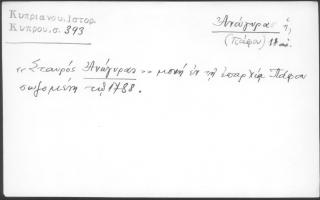 Κυπριανου. Ιστορ.
Κυπρου. σ. 393
Ἀνώγυρας ἡ,
(Πάφου)
„ Σταυρός Ἀνώγυρας „ μονή ἐν τῇ ἐπαρχίᾳ Πάφου
σωζομένη τῷ 1788.